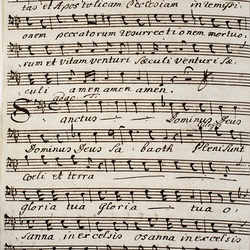 tas et Apostolicam Ecclesiam in remissi
onem peccatorum resurrectionem mortuo,
rum et vitam venturi sæculi venturi sæ,
culi amen amen amen.
adagio
Sanctus — Dominus Deus
Dominus Deus Sabaoth Pleni sunt
Coeli et terra —
gloria tua gloria — tua o,
sanna in excelsis osanna in excelsis